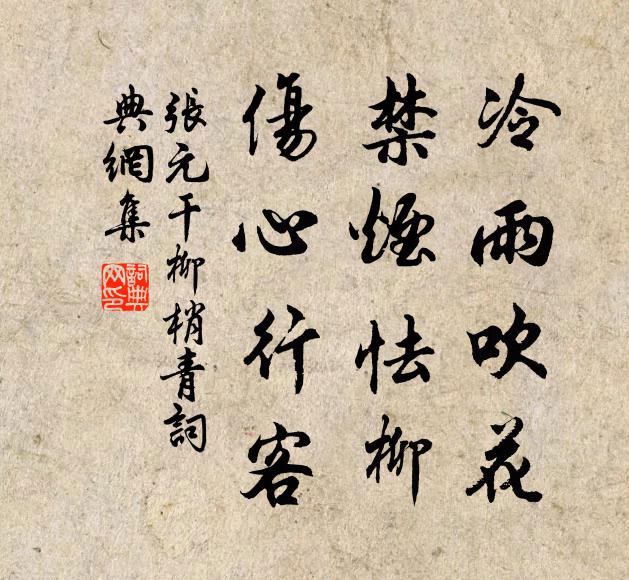 冷雨吹花
禁煙怯柳
傷心行客
張元干柳梢青詞
典網集
詞典網印